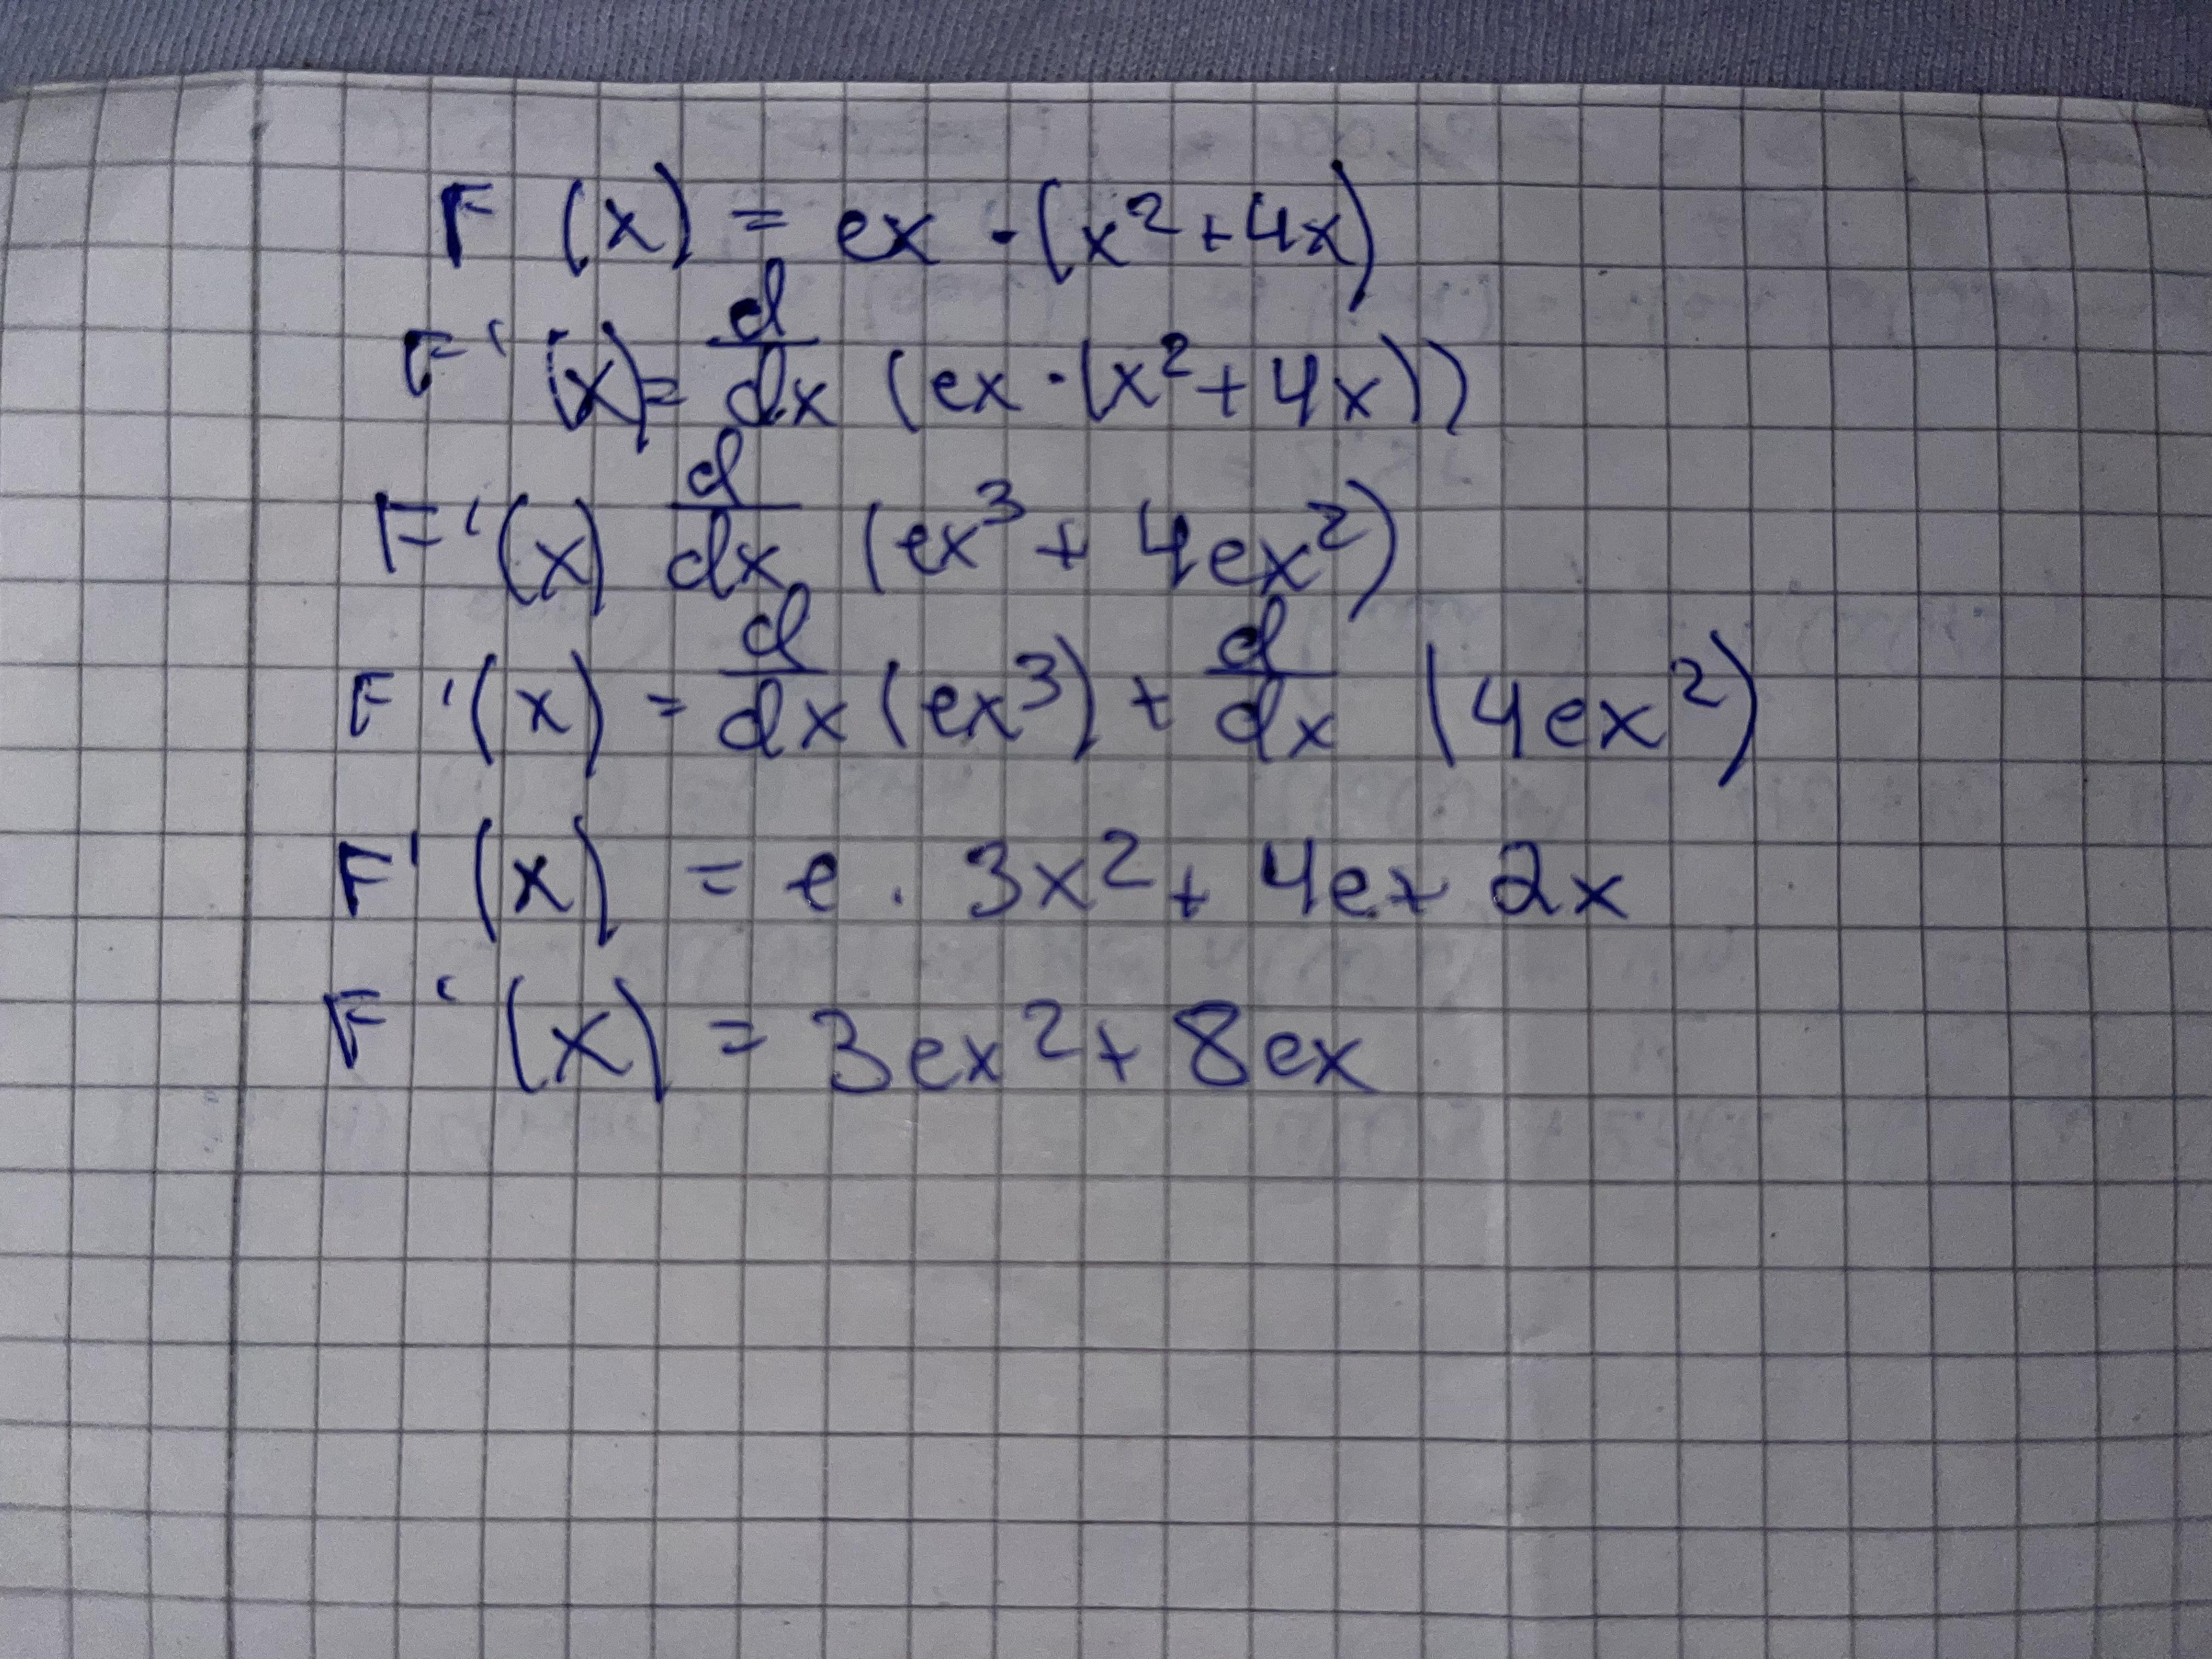 F (x) = ex · (x² + 4x)
F' (x) = d/dx (ex · (x² + 4x))
F' (x) d/dx (ex³ + 4ex²)
F' (x) = d/dx (ex³) + d/dx (4ex²)
F' (x) = e · 3x² + 4e + 2x
F' (x) = 3ex² + 8ex